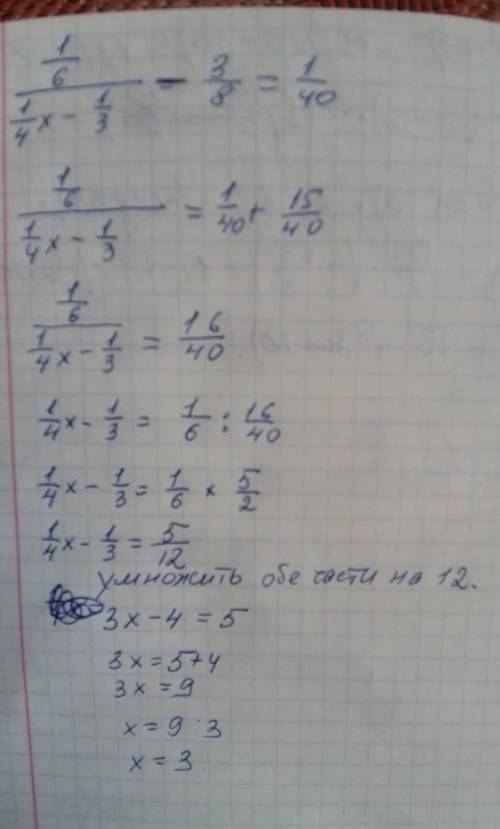 1/6 / (1/4 x - 1/3) - 3/8 = 1/40
1/6 / (1/4 x - 1/3) = 1/40 + 15/40
1/6 / (1/4 x - 1/3) = 16/40
1/4 x - 1/3 = 1/6 : 16/40
1/4 x - 1/3 = 1/6 × 5/2
1/4 x - 1/3 = 5/12
умножить обе части на 12.
3x - 4 = 5
3x = 5+4
3x = 9
x = 9 : 3
x = 3